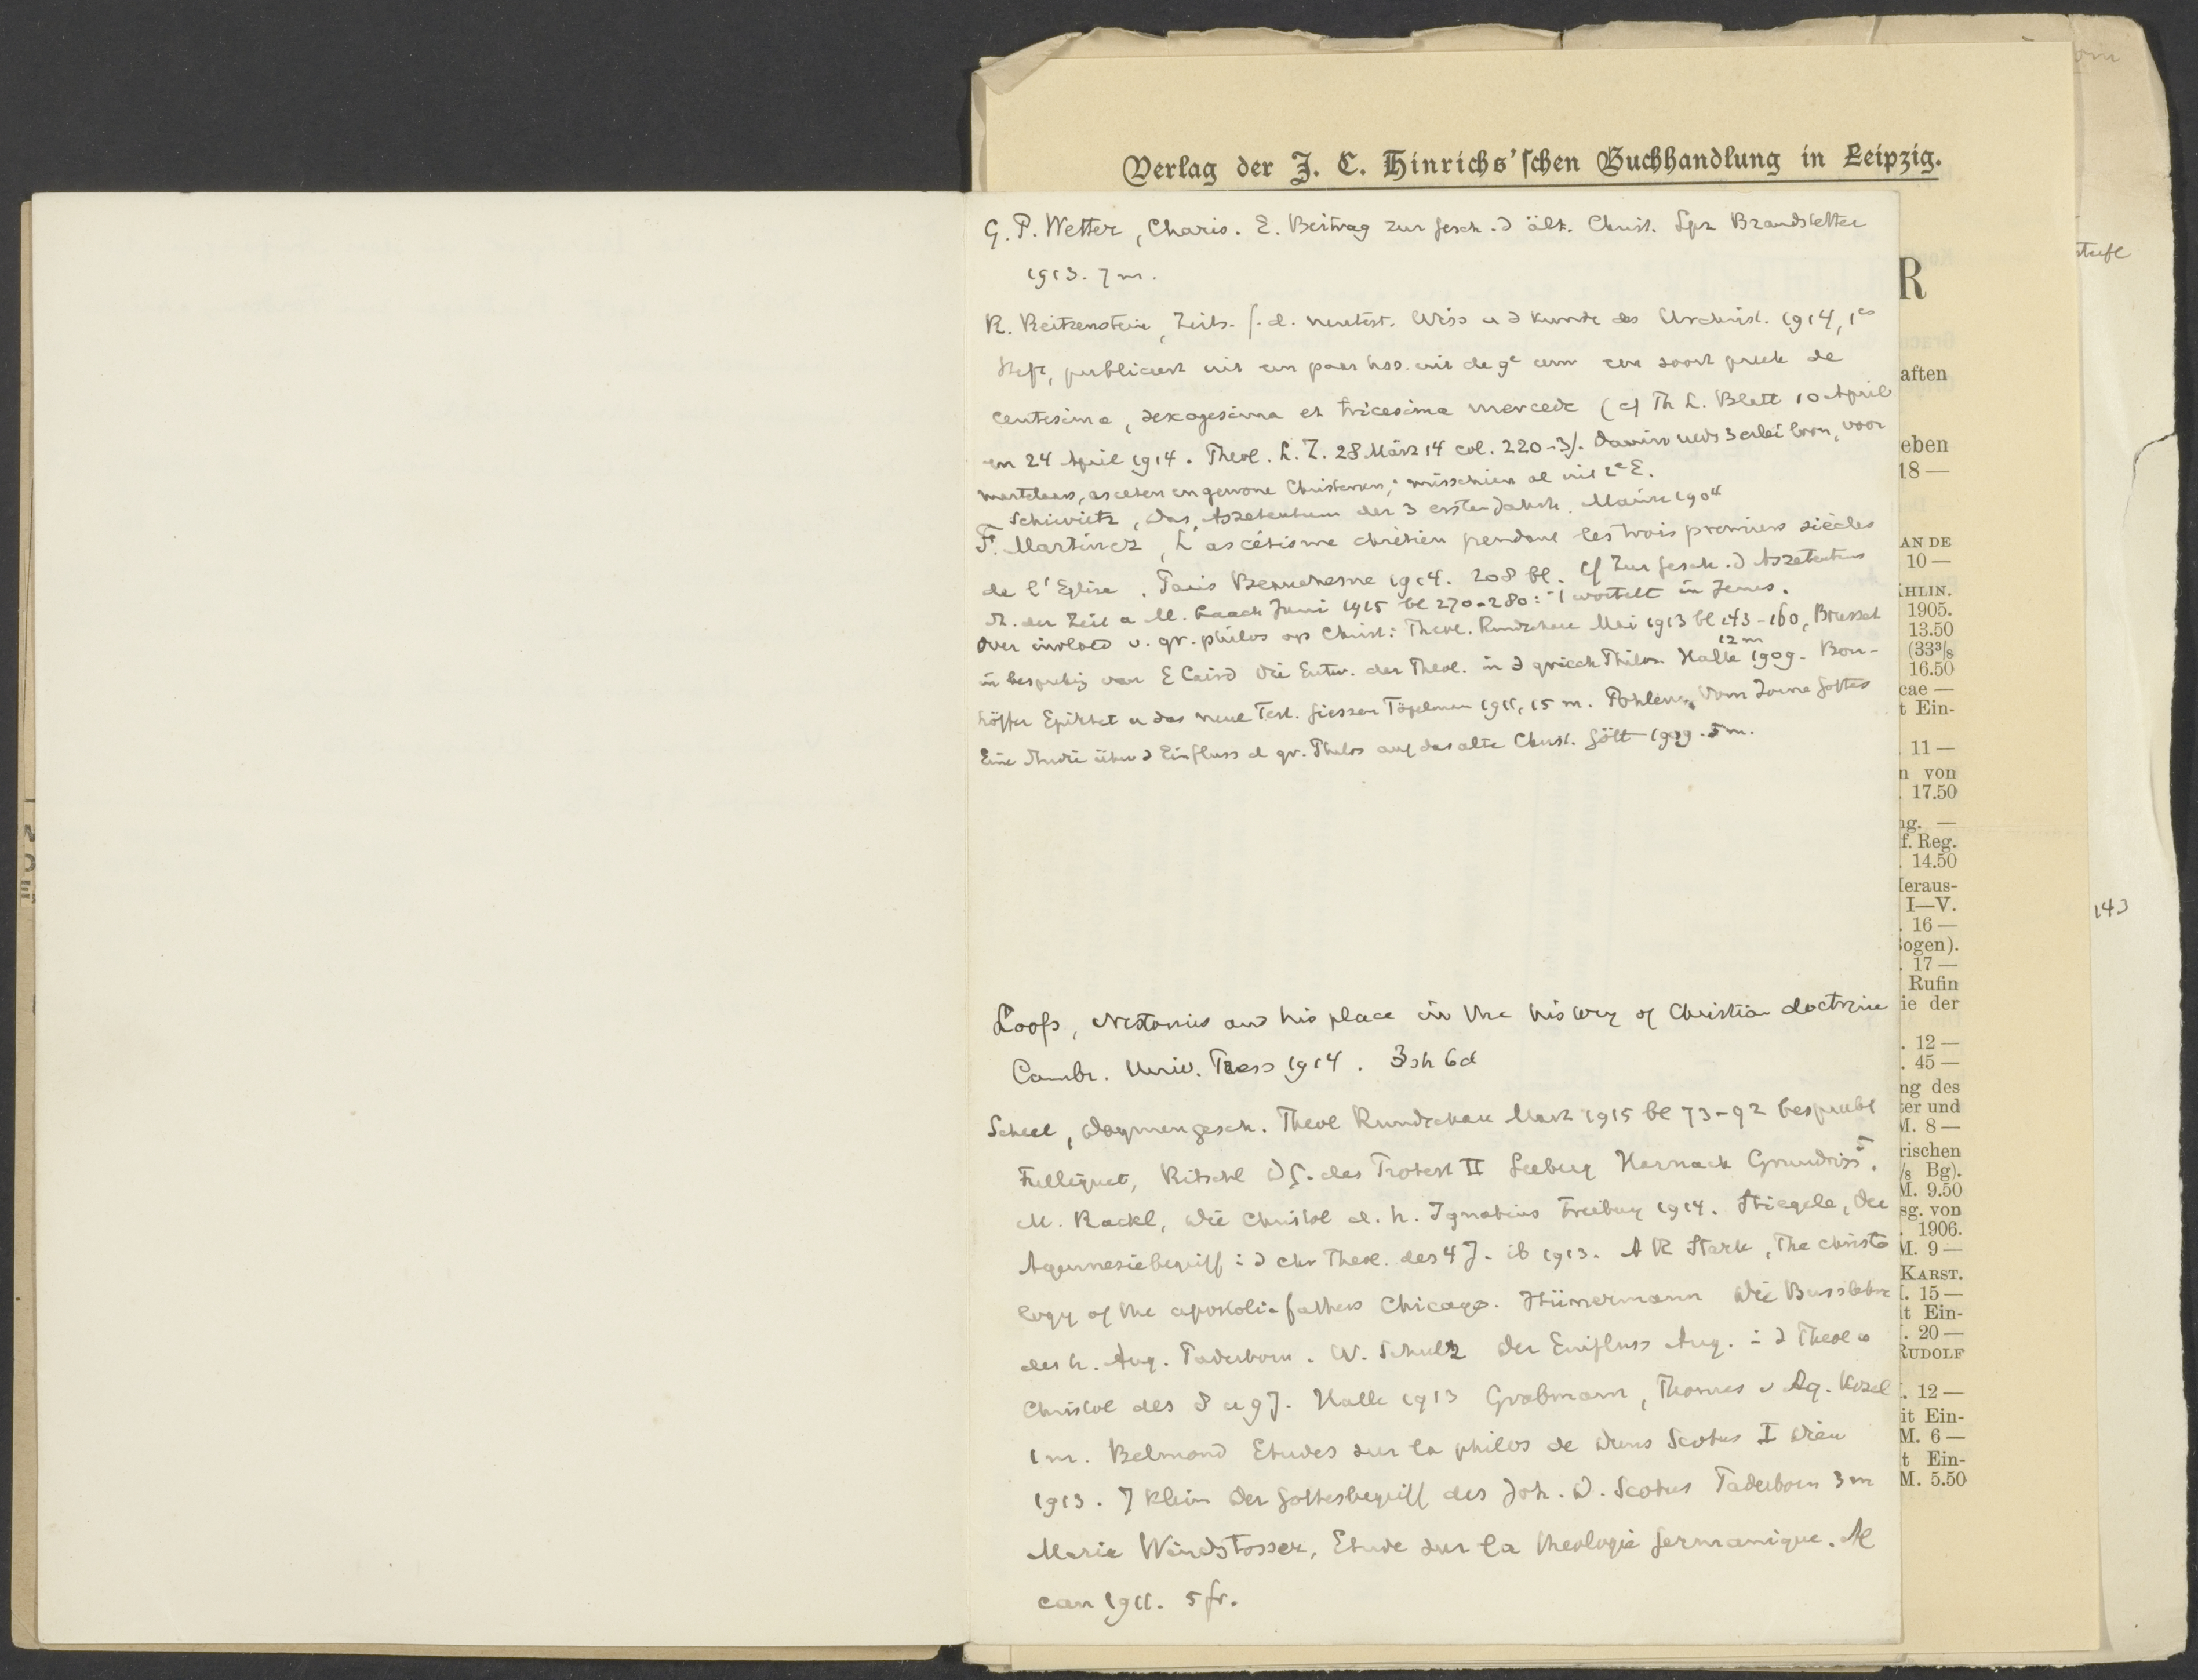 Verlag der J. C. Hinrichs'schen Buchhandlung in Leipzig.
G. P. Wetter, Charis. E. Beitrag zur Gesch. d ält. Christ. Lpz Brandstetter
1913. 7 m.
R. Reitzenstein, Zeits. f. d. neutest. Wiss u d Kunde des Urchrist. 1914, 1es
Heft, publiceert uit een paar hss. uit de 9e eeuw een soort preek de
centesima, sexagesima et tricesima mercede (cf Th L. Blatt 10 April
en 24 April 1914. Theol. L. Z. 28 März 14 col. 220-3). Daarin reeds 3erlei loon, voor
martelaars, asceten en gewone Christenen; misschien al uit 2e E.
Schiwietz, Das Aszetentum der 3 ersten Jahrh. Mainz 1904
F. Martinez, L'ascétisme chrétien pendant les trois premiers siècles
de l'Eglise. Paris Beauchesne 1914. 208 bl. cf Zur Gesch. d Aszetentums
St. der Zeit a M. Laach Juni 1915 bl 270-280: -| wortelt in Jezus.
Over invloed v. gr. philos op Christ: Theol. Rundschau Mai 1913 bl 143-160, Brussel
in bespreking van E Caird Die Entw. der Theol. in d griech Philos. Halle 1909. Bon-
12 m
höffer Epiktet u das neue Test. Giessen Töpelman 1911, 15 m. Pohlenz, Vom Zorne Gottes
Eine Studie über d Einfluss d gr. Philos auf das alte Christ. Gött 1909. 5 m.
Loofs, Nestorius and his place in the history of Christian doctrine
Cambr. Univ. Press 1914. 3 sh 6d
Scheel, Dogmengesch. Theol Rundschau Marz 1915 bl 73-92 bespreekt
Fulliquet, Ritschl DG. des Protest II Seeberg Harnack Grundriss 5.
M. Rackl, Die Christol d. h. Ignatius Freiburg 1914. Stiegele, Der
Agennesiebegriff i d chr Theol. des 4 J. ib 1913. A R Stark, The christo
logy of the apostolic fathers Chicago. Hünermann Die Busslehre
des h. Aug. Paderborn. W. Schulz Der Einfluss Aug. i d Theol u
Christol des 8 u 9 J. Halle 1913 Grabmann, Thomas v Aq. Kösel
1 m. Belmond Etudes sur la philos de Duns Scotus I Dieu
1913. J Klein Der Gottesbegriff des Joh. D. Scotus Paderborn 3 m
Maria Windstosser, Etude sur la theologie Germanique. Al
can 1911. 5 fr.
R
aften
eben
18 —
AN DE
10 —
HLIN.
1905.
13.50
(33³/₈
16.50
cae —
t Ein-
. 11 —
n von
. 17.50
ng. —
f. Reg.
. 14.50
Heraus-
I—V.
. 16 —
Bogen).
. 17 —
Rufin
ie der
. 12 —
. 45 —
ng des
ter und
M. 8 —
rischen
/₈ Bg).
M. 9.50
sg. von
1906.
M. 9 —
KARST.
. 15 —
it Ein-
. 20 —
RUDOLF
. 12 —
it Ein-
M. 6 —
t Ein-
M. 5.50
143